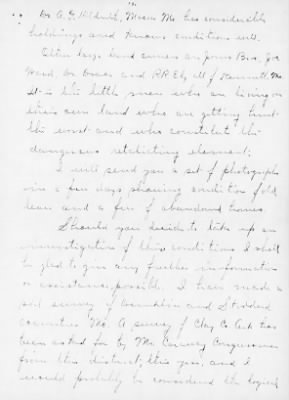 Dr. A. G. Aldrich, Moscow Mo. has considerable
holdings and knows conditions well.
Other large land owners are Jones Bros., Joe
Ward, Dr. and R.R. Ely all of Kennett, Mo.
It is the little men who are living on
their own land who are getting hurt
the worst and who constitute the
dangerous retaliating element.
I will send you a set of photographs
in a few days showing condition of old
and a few of abandoned homes.
Should you decide to take up an
investigation of this conditions I shall
be glad to give any further information
or assistance possible. I have made a
soil survey of Dunklin and Stoddard
counties Mo. A survey of Clay Co. Ark has
been asked for by Mr. Congressman
from this district, this year, and I
would probably be considered the logical